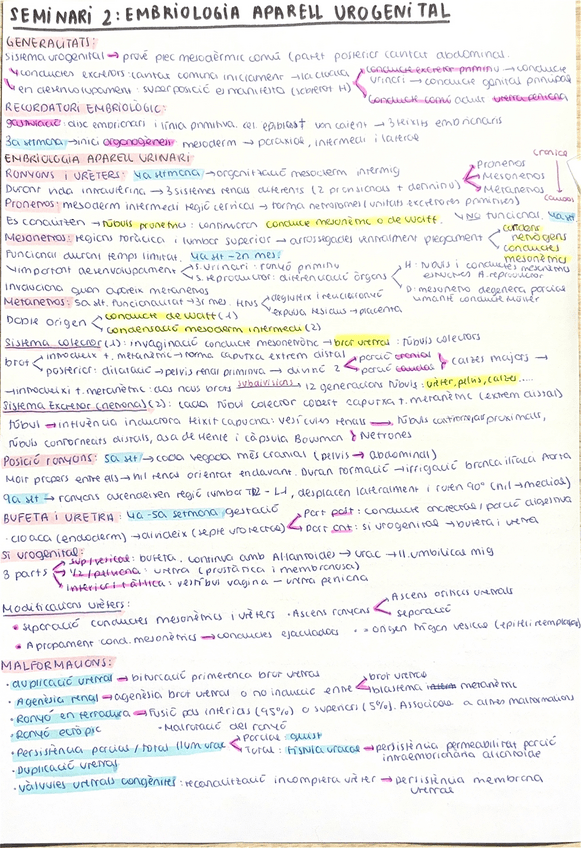 SEMINARI 2: EMBRIOLOGIA APARELL UROGENITAL
GENERALITATS:
Sistema urogenital → prové plec mesodèrmic comú (paret posterior cavitat abdominal.
conductes excretors: cavitat comuna inicialment → la cloaca
conducte excretor primitiu → conducte
urinari → conducte genital principal
en desenvolupament: superposició es manifesta (sobretot H)
conducte comú adult uretra peniana
RECORDATORI EMBRIOLÒGIC:
gastrulació: disc embrionari i línia primitiva. cèl epiblast van caient → 3 teixits embrionaris
3a setmana → inici organogènesi mesoderm → paraxial, intermedi i lateral
EMBRIOLOGIA APARELL URINARI
cranial
RONYONS I URÈTERS: 4a setmana → organització mesoderm intermig
Pronefros
Durant vida intrauterina → 3 sistemes renals diferents (2 provisionals + definitiu)
Mesonefros
Metanefros
caudal
Pronefros: mesoderm intermedi regió cervical → forma nefròmers (unitats excretores primitives)
Es canalitzen → túbuls pronefrics: continuaran conducte mesonèfric o de Wolff. NO funcional. 4a set
Mesonefros: regions toràcica i lumbar superior → arrossegades ventralment plegament
cordons nefrògens
conductes mesonèfrics
Funcional durant temps limitat. 4a set - 2n mes:
important desenvolupament
S. urinari: ronyó primitiu
S. reproductor: diferenciació òrgans
H: túbuls i conductes mesonèfrics
estructures A. reproductor
D: mesonefro degenera parcial
Involuciona quan apareix metanefros
Metanefros: 5a set. Funcionalitat → 3r mes.
Doble origen
conducte de Wolff (1)
condensació mesoderm intermedi (2)
Sistema colector (1): invaginació conducte mesonèfric → brot ureteral: túbuls colectors
brot
introdueix t. metanèfric → forma caputxa extrem distal
posterior: dilatació → pelvis renal primitiva → divideix 2
porció cranial
porció caudal
calzes majors →
→ introdueixi t. metanèfric: dos nous brots subdivisions 12 generacions túbuls: urèter, pelvis, calzes....
Sistema Excretor (nefrona) (2): cada túbul colector cobert caputxa t. metanèfric (extrem distal)
Túbul → influència inductora teixit caputxa: vesícules renals → túbuls contornejats proximals,
túbuls contornejats distals, asa de Henle i càpsula Bowman } Nefrones
Posició ronyons: 5a set → cada vegada més cranial (pelvis → abdominal)
Molt propers entre ells → hil renal orientat endavant. Durant formació → irrigació branca ilíaca Aorta
9a set → ronyons ascendeixen regió lumbar T12 - L1, desplacen lateralment i roten 90º (hil → medial)
BUFETA I URETRA: 4a-5a setmana gestació
· cloaca (endoderm) → divideix (septe urorectal)
Part post: conducte anorectal / porció digestiva
Part ant: si urogenital → bufeta i uretra
Si urogenital:
3 parts
sup/vesical: bufeta. continua amb Allantoides → urac → ll. umbilical mig
1/2 / pelviana: uretra (prostàtica i membranosa)
inferior i fàl·lica: vestíbul vagina — uretra peniana
Modificacions urèters:
• separació conductes mesonèfrics i urèters · Ascens ronyons
Ascens orificis ureterals
separació
• Apropament cond. mesonèfrics → conductes ejaculadors · origen trígon vesical
MALFORMACIONS:
· duplicació ureteral → bifurcació primerenca brot ureteral
· Agenèsia renal → agenèsia brot ureteral o no inducció entre
brot ureteral
blastema metanèfric
· Ronyó en ferradura → Fusió pols inferiors (95%) o superiors (5%). Associada a altres malformacions
· Ronyó ectòpic · Malrotació del ronyó
· Persistència parcial / total llum urac
Parcial: quist
Total: fístula uracal → persistència permeabilitat porció
intraembrionària alantoide
· Duplicació uretral
· Vàlvules uretrals congènites: recanalització incompleta urèter → persistència membrana
uretral